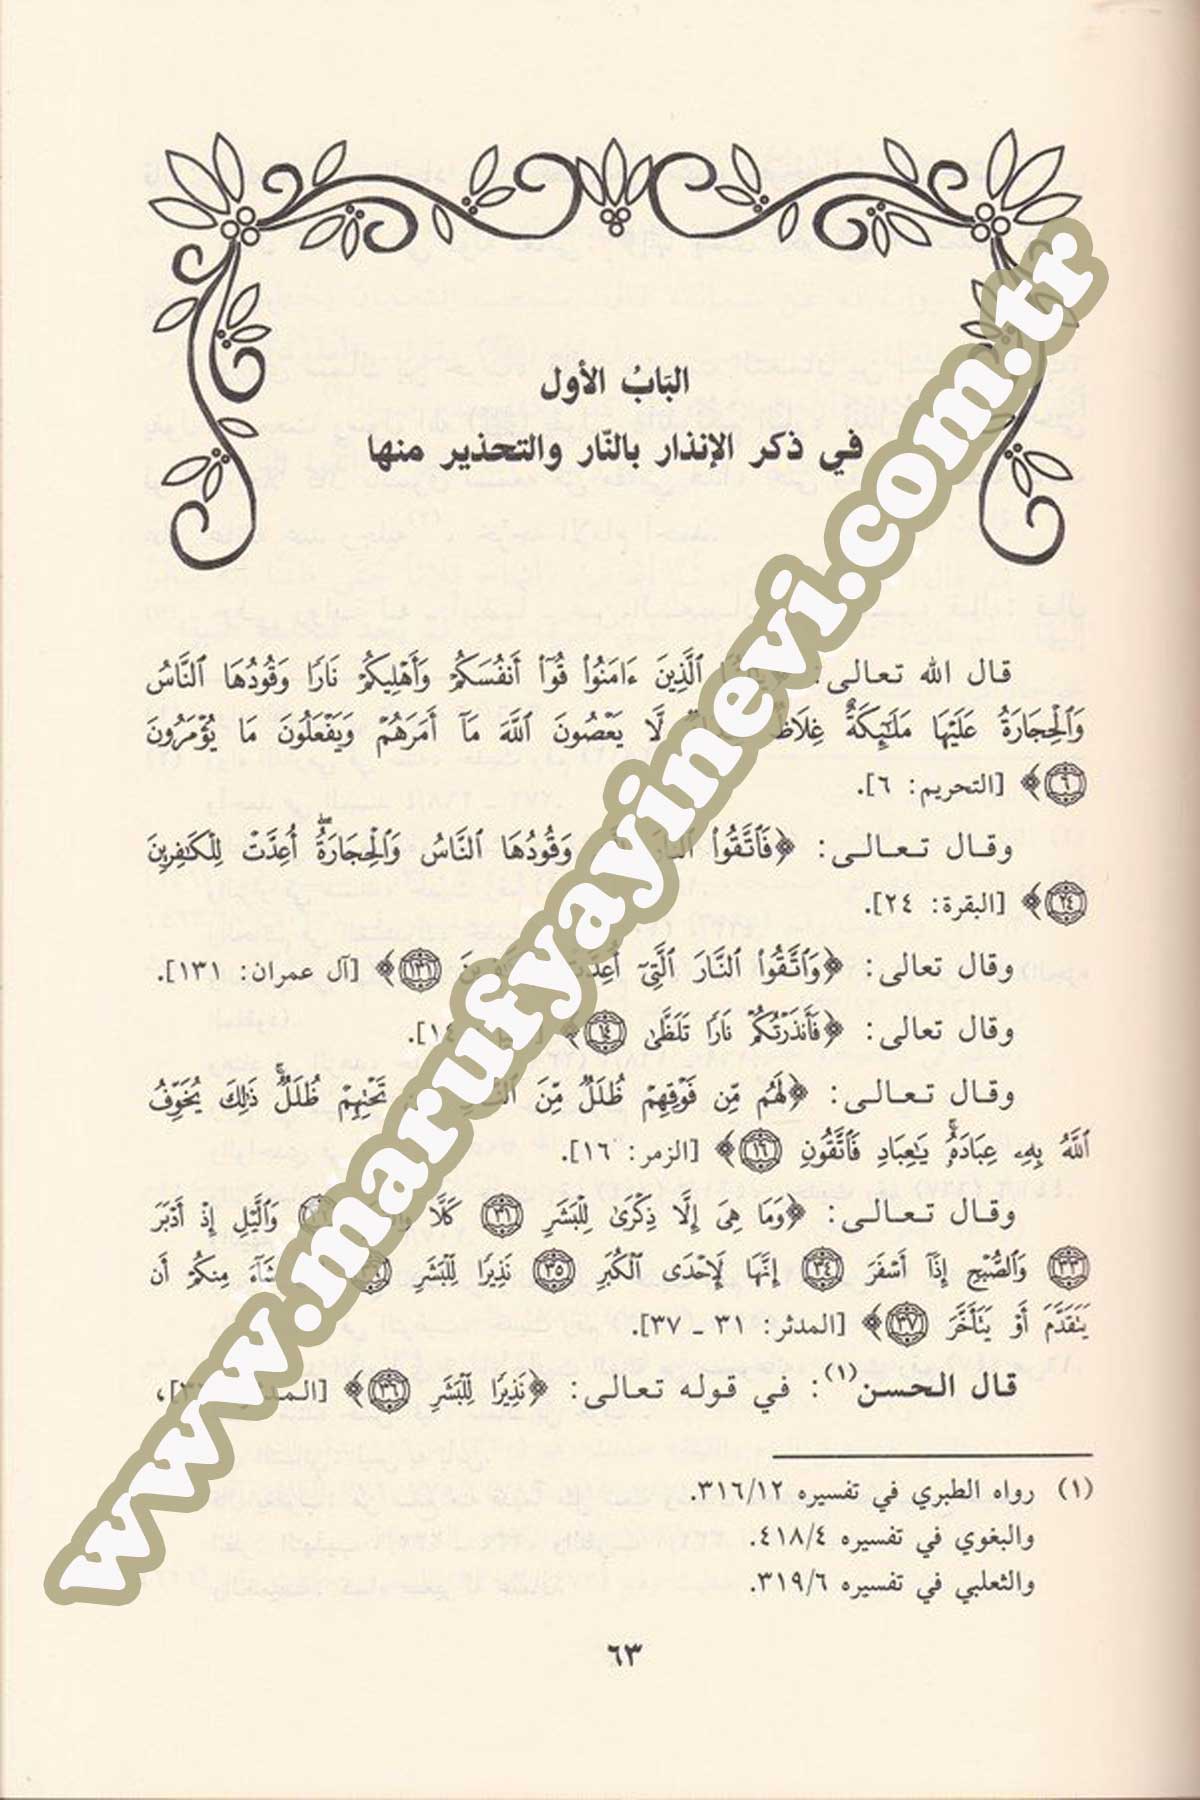 البَابُ الأول
في ذكر الإنذار بالنّار والتحذير منها
قال الله تعالى: ﴿ ٱلَّذِينَ ءَامَنُوا۟ قُوٓا۟ أَنفُسَكُمْ وَأَهْلِيكُمْ نَارًا وَقُودُهَا ٱلنَّاسُ
وَٱلْحِجَارَةُ عَلَيْهَا مَلَٰٓئِكَةٌ غِلَاظٌ لَّا يَعْصُونَ ٱللَّهَ مَآ أَمَرَهُمْ وَيَفْعَلُونَ مَا يُؤْمَرُونَ
﴿٦﴾ [التحريم: ٦].
وقال تعالى: ﴿فَٱتَّقُوا۟ ٱلنَّارَ وَقُودُهَا ٱلنَّاسُ وَٱلْحِجَارَةُ ۖ أُعِدَّتْ لِلْكَٰفِرِينَ
﴿٢٤﴾ [البقرة: ٢٤].
وقال تعالى: ﴿وَٱتَّقُوا۟ ٱلنَّارَ ٱلَّتِىٓ أُعِدَّتْ ﴿١٣١﴾ [آل عمران: ١٣١].
وقال تعالى: ﴿فَأَنذَرْتُكُمْ نَارًا تَلَظَّىٰ ﴿١٤﴾ [ ١٤].
وقال تعالى: ﴿لَهُم مِّن فَوْقِهِمْ ظُلَلٌ مِّنَ ٱلنَّارِ تَحْتِهِمْ ظُلَلٌ ۚ ذَٰلِكَ يُخَوِّفُ
ٱللَّهُ بِهِۦ عِبَادَهُۥ ۚ يَٰعِبَادِ فَٱتَّقُونِ ﴿١٦﴾ [الزمر: ١٦].
وقال تعالى: ﴿وَمَا هِىَ إِلَّا ذِكْرَىٰ لِلْبَشَرِ ﴿٣١﴾ كَلَّا وَٱلَّيْلِ إِذْ أَدْبَرَ
﴿٣٣﴾ وَٱلصُّبْحِ إِذَآ أَسْفَرَ ﴿٣٤﴾ إِنَّهَا لَإِحْدَى ٱلْكُبَرِ ﴿٣٥﴾ نَذِيرًا لِّلْبَشَرِ ﴿٣٦﴾ شَآءَ مِنكُمْ أَن
يَتَقَدَّمَ أَوْ يَتَأَخَّرَ ﴿٣٧﴾ [المدثر: ٣١ ـ ٣٧].
قال الحسن(١): في قوله تعالى: ﴿نَذِيرًا لِّلْبَشَرِ ﴿٣٦﴾ [المدثر: ٣٦]،
(١) رواه الطبري في تفسيره ٣١٦/١٢.
والبغوي في تفسيره ٤١٨/٤.
والثعلبي في تفسيره ٣١٩/٦.
٦٣
www.marufyayinevi.com.tr